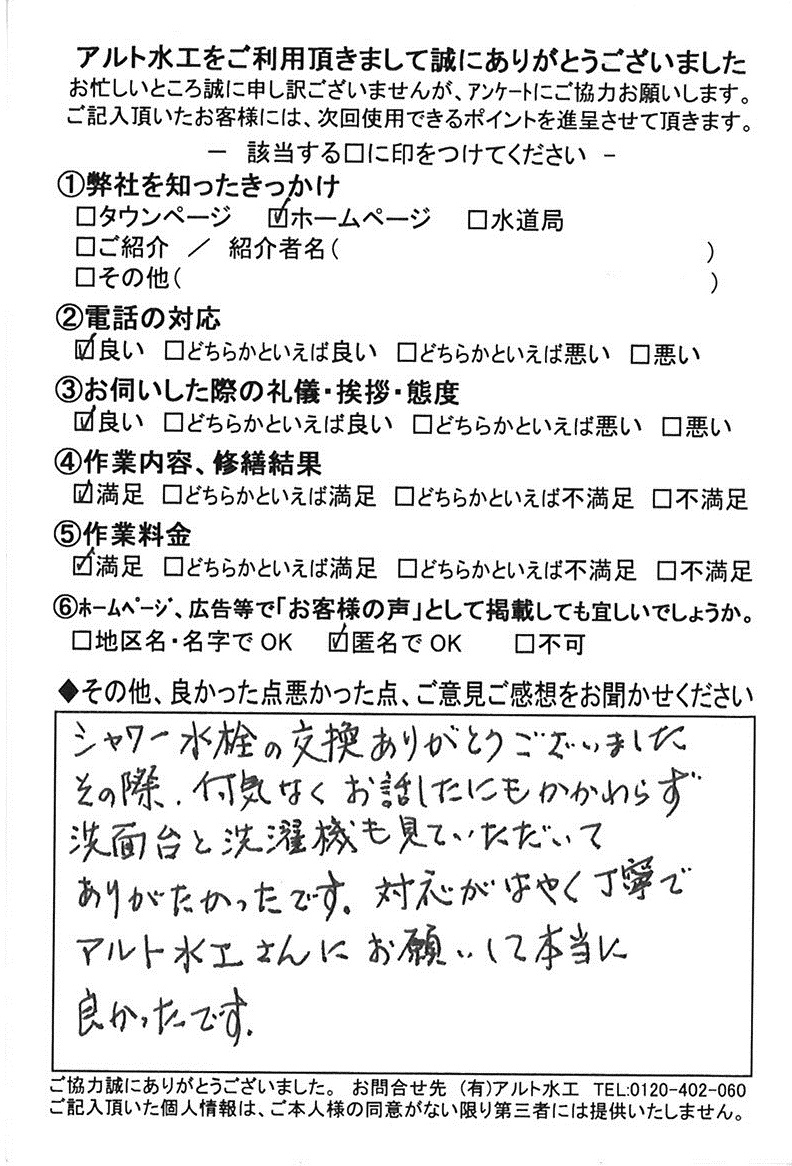 アルト水工をご利用頂きまして誠にありがとうございました
お忙しいところ誠に申し訳ございませんが、アンケートにご協力お願いします。
ご記入頂いたお客様には、次回使用できるポイントを進呈させて頂きます。
－ 該当する□に印をつけてください －
①弊社を知ったきっかけ
□タウンページ ☑ホームページ □水道局
□ご紹介 ／ 紹介者名( )
□その他( )
②電話の対応
☑良い □どちらかといえば良い □どちらかといえば悪い □悪い
③お伺いした際の礼儀・挨拶・態度
☑良い □どちらかといえば良い □どちらかといえば悪い □悪い
④作業内容、修繕結果
☑満足 □どちらかといえば満足 □どちらかといえば不満足 □不満足
⑤作業料金
☑満足 □どちらかといえば満足 □どちらかといえば不満足 □不満足
⑥ホームページ、広告等で「お客様の声」として掲載しても宜しいでしょうか。
□地区名・名字でOK ☑匿名でOK □不可
◆その他、良かった点悪かった点、ご意見ご感想をお聞かせください
シャワー水栓の交換ありがとうございました
その際、何気なくお話したにもかかわらず
洗面台と洗濯機も見ていただいて
ありがたかったです。対応がはやく丁寧で
アルト水工さんにお願いして本当に
良かったです。
ご協力誠にありがとうございました。 お問合せ先 (有)アルト水工 TEL:0120-402-060
ご記入頂いた個人情報は、ご本人様の同意がない限り第三者には提供いたしません。